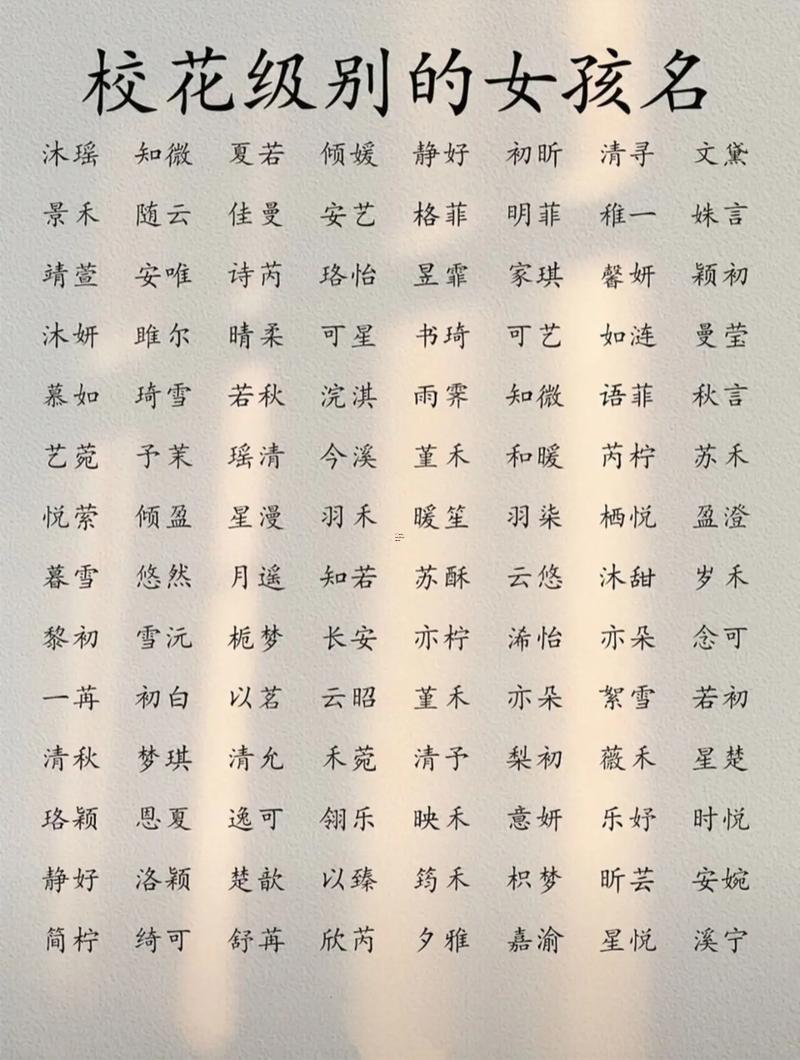 校花级别的女孩名
沐瑶 知微 夏若 倾媛 静好 初昕 清寻 文黛
景禾 随云 佳曼 安艺 格菲 明菲 稚一 姝言
靖萱 安唯 诗芮 珞怡 昱霏 家琪 馨妍 颖初
沐妍 雎尔 晴柔 可星 书琦 可艺 如涟 曼莹
慕如 琦雪 若秋 浣淇 雨霁 知微 语菲 秋言
艺菀 予茉 瑶清 今溪 堇禾 和暖 芮柠 苏禾
悦萦 倾盈 星漫 羽禾 暖笙 羽柒 栖悦 盈澄
暮雪 悠然 月遥 知若 苏酥 云悠 沐甜 岁禾
黎初 雪沅 栀梦 长安 亦柠 浠怡 亦朵 念可
一苒 初白 以茗 云昭 堇禾 亦朵 絮雪 若初
清秋 梦琪 清允 禾菀 清予 梨初 薇禾 星楚
珞颖 恩夏 逸可 翎乐 映禾 意妍 乐妤 时悦
静好 洛颖 楚歆 以臻 筠禾 枳梦 昕芸 安婉
简柠 绮可 舒苒 欣芮 夕雅 嘉渝 星悦 溪宁